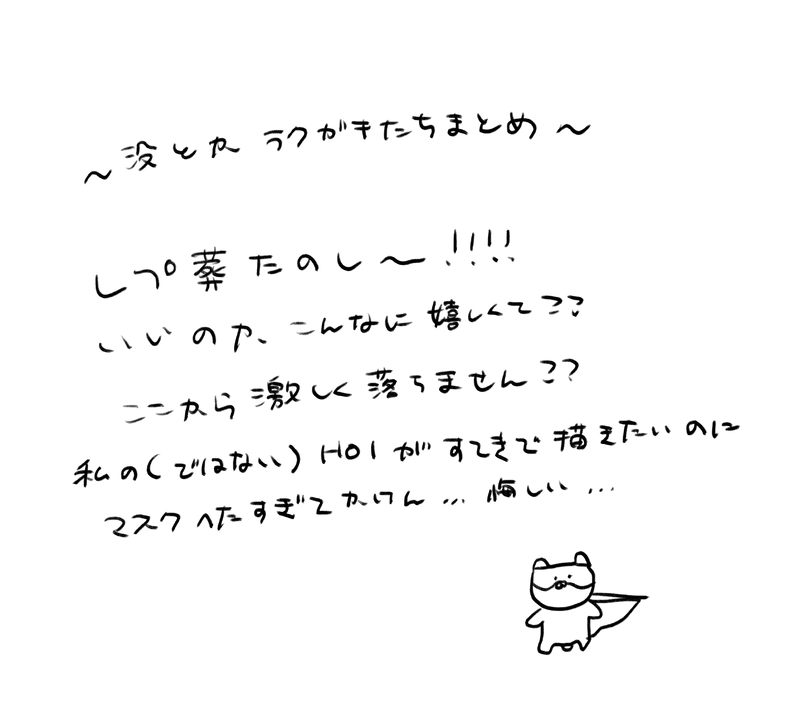 ～没とか ラクがきたちまとめ～
レプ葬たのし～!!!!
いいのか、こんなに嬉しくて??
ここから激しく落ちません??
私の(ではない)HO1がすてきで描きたいのに
マスクへたすぎてかけん…悔しい…